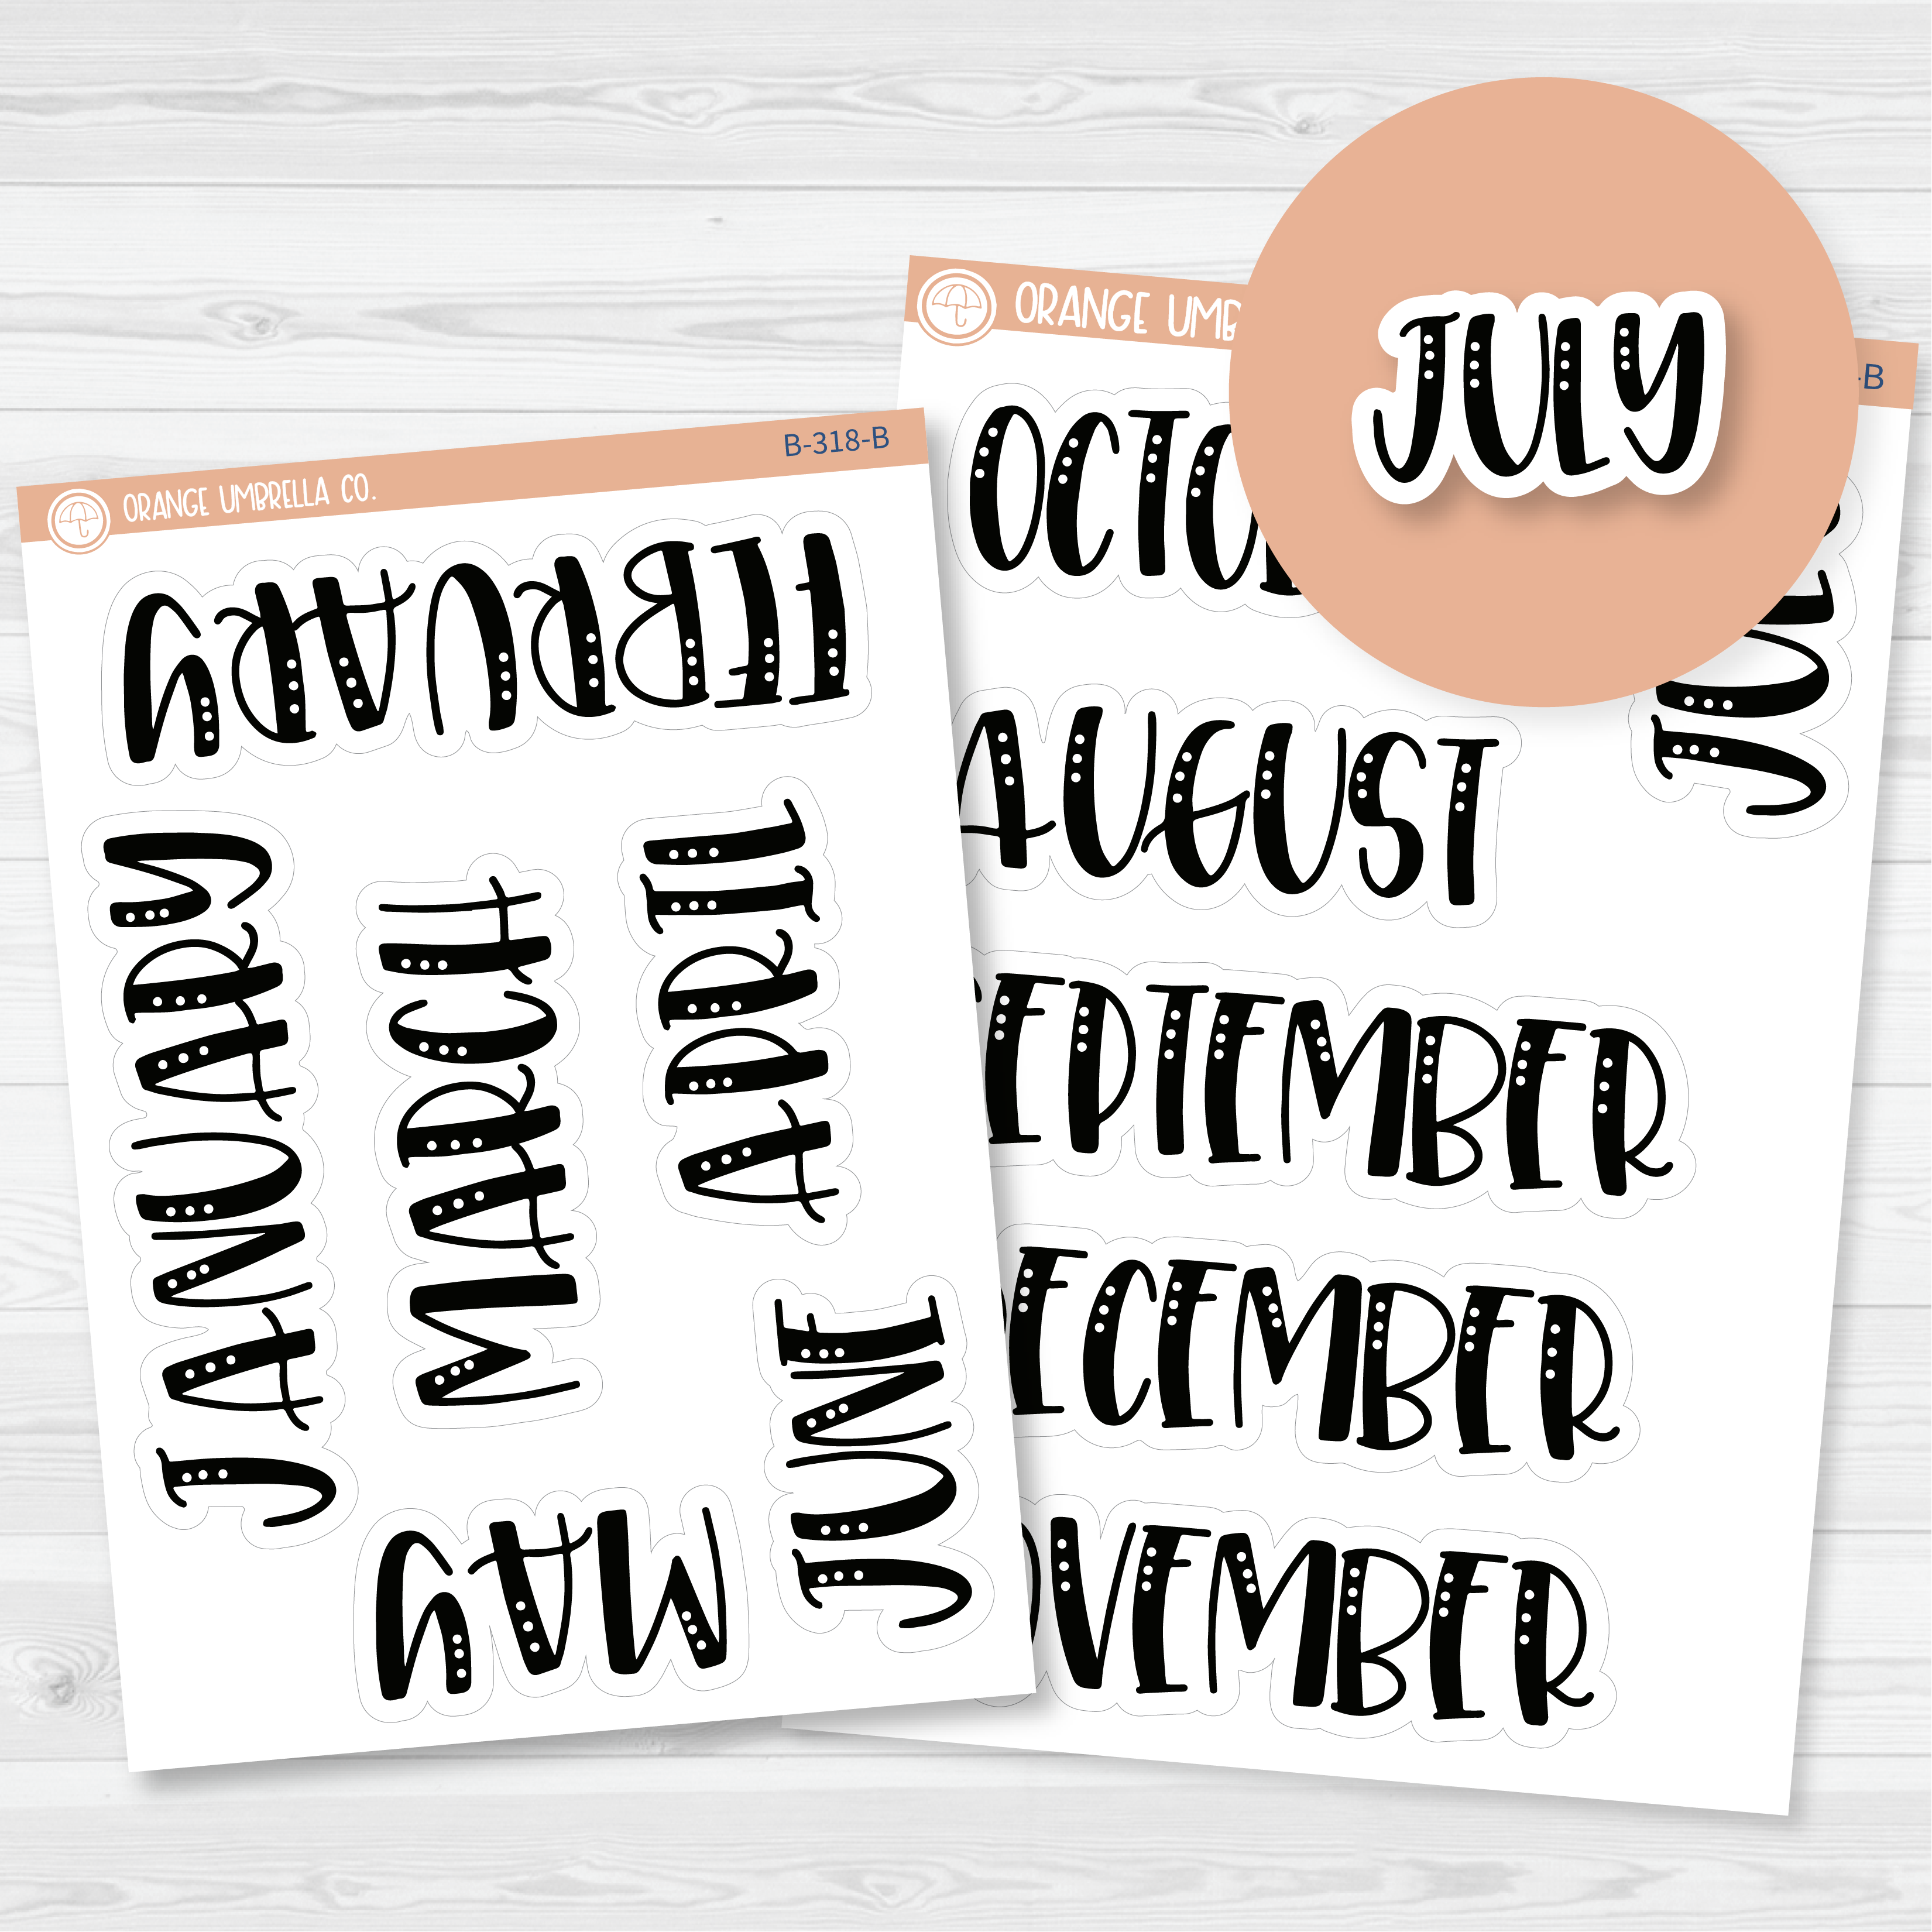 ORANGE UMBRELLA CO.
B-318-B
FEBRUARY
JANUARY
MARCH
APRIL
MAY
JUNE
ORANGE UMB
-B
OCTO
JULY
AUGUST
EPTEMBER
ECEMBER
OVEMBER
JULY